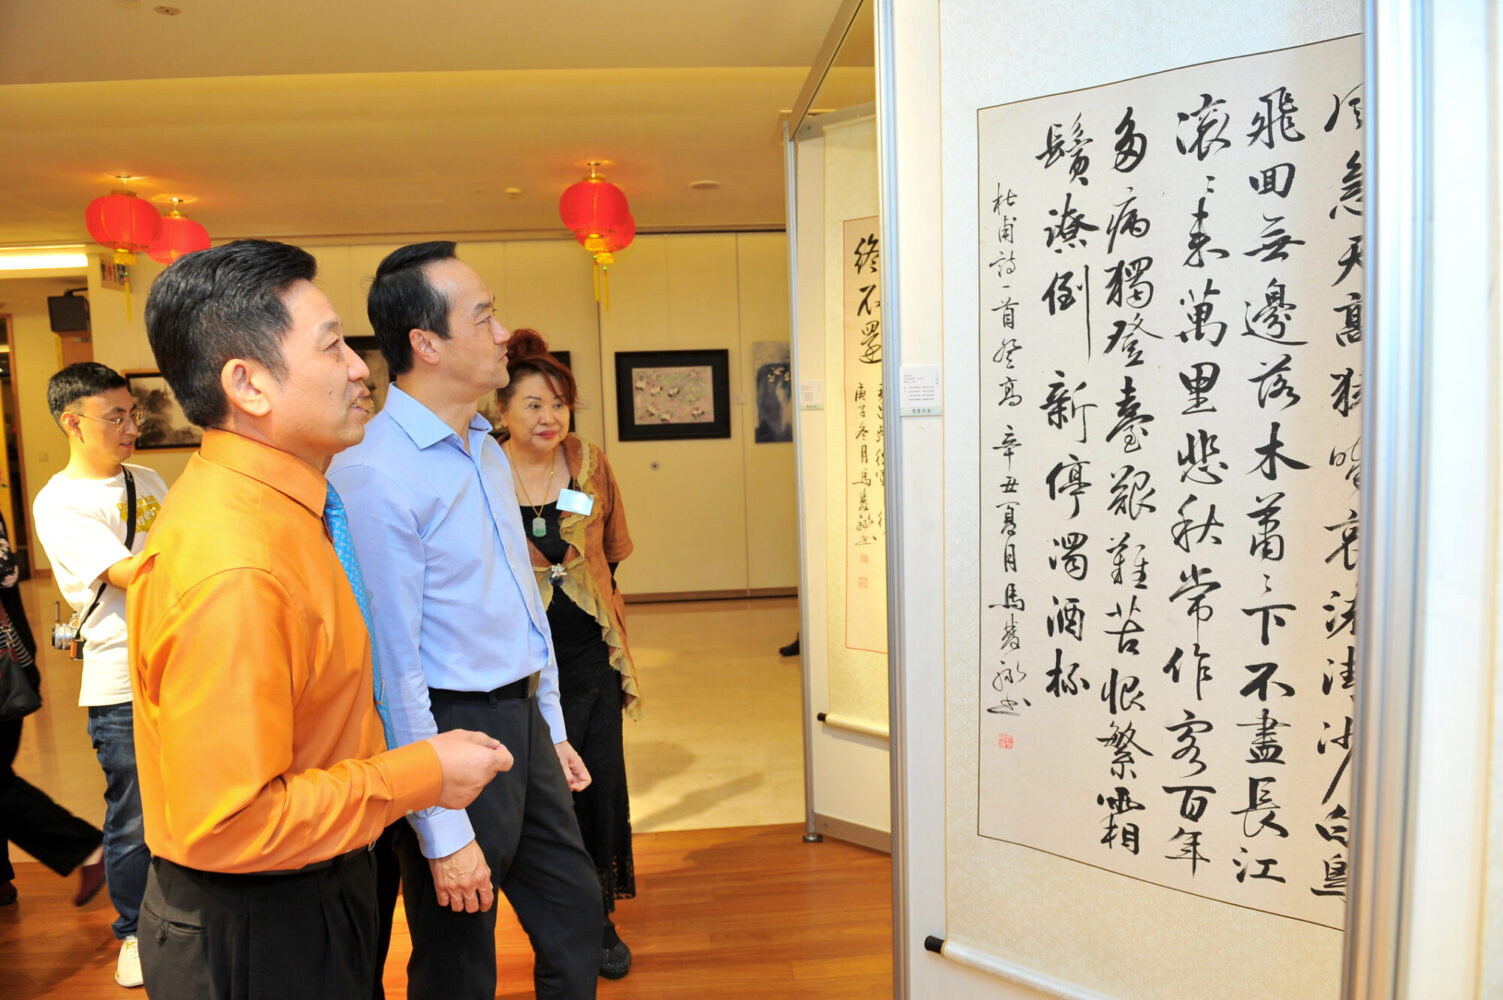 風急天高猿嘯哀渚清沙白鳥
飛回無邊落木蕭〻下不盡長江
滾〻來萬里悲秋常作客百年
多病獨登臺艱難苦恨繁霜
鬢潦倒新停濁酒杯
杜甫詩一首登高 辛丑夏月馬书
終不還
庚子冬月馬书